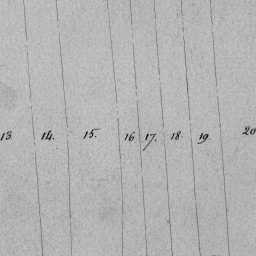 13. 14. 15. 16 17. 18. 19. 20